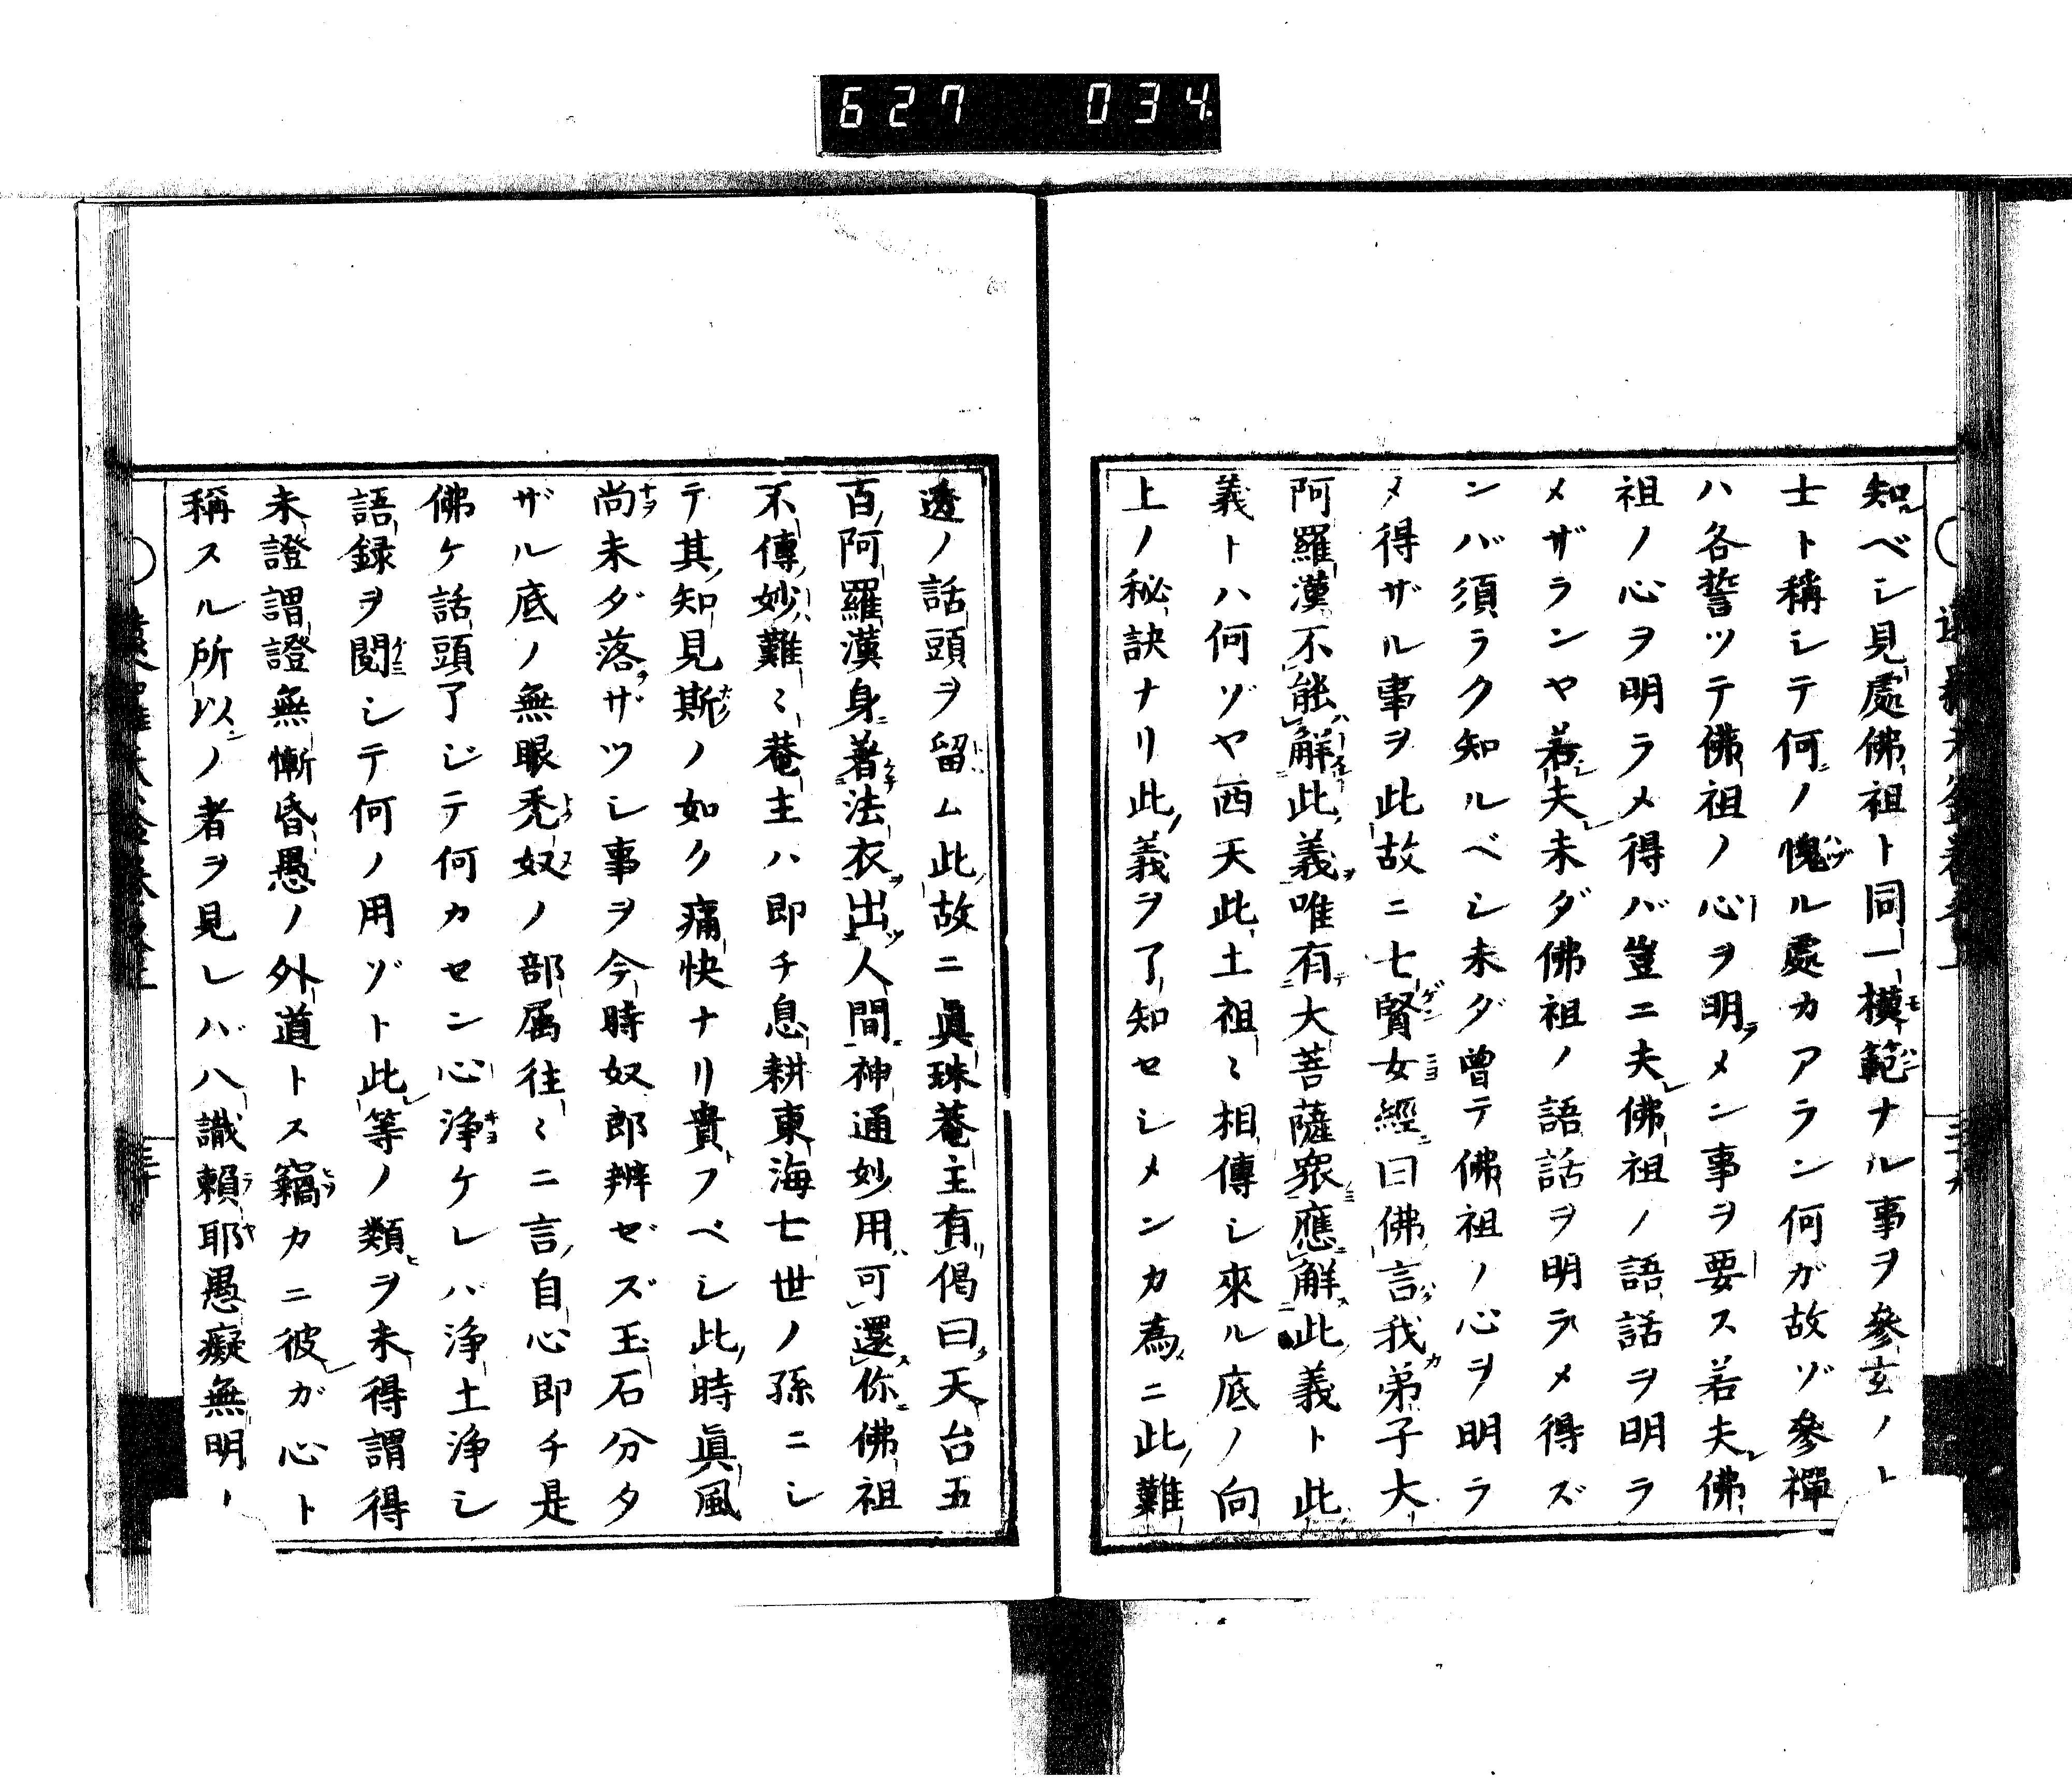 627 034
知ベシ見處佛祖ト同一模範ナル事ヲ參玄ノ
士ト稱シテ何ノ愧ル處カアラン何ガ故ゾ參禪
ハ各誓ツテ佛祖ノ心ヲ明メン事ヲ要ス若夫佛
祖ノ心ヲ明ラメ得バ豈ニ夫佛祖ノ語話ヲ明ラ
メザランヤ若夫未ダ佛祖ノ語話ヲ明ラメ得ズ
ンバ須ラク知ルベシ未ダ曽テ佛祖ノ心ヲ明ラ
メ得ザル事ヲ此故ニ七賢女經曰佛言我弟子大
阿羅漢不能解此義唯有大菩薩衆應解此義ト此
義トハ何ゾヤ西天此土祖〻相傳シ來ル底ノ向
上ノ秘訣ナリ此義ヲ了知セシメンカ為ニ此難
透ノ話頭ヲ留ム此故ニ眞珠菴主有偈曰天台五
百阿羅漢身着法衣出人間神通妙用可還你佛祖
不傳妙難〻菴主ハ即チ息耕東海七世ノ孫ニシ
テ其知見斯ノ如ク痛快ナリ貴フベシ此時眞風
尚未ダ落ザツシ事ヲ今時奴郎辨ゼズ玉石分タ
ザル底ノ無眼禿奴ノ部属往〻ニ言自心即チ是
佛ケ話頭了ジテ何カセン心浄ケレバ浄土浄シ
語録ヲ閲シテ何ノ用ゾト此等ノ類ヲ未得謂得
未證謂證無慚昏愚ノ外道トス竊カニ彼ガ心ト
稱スル所以ノ者ヲ見レバ八識頼耶愚癡無明